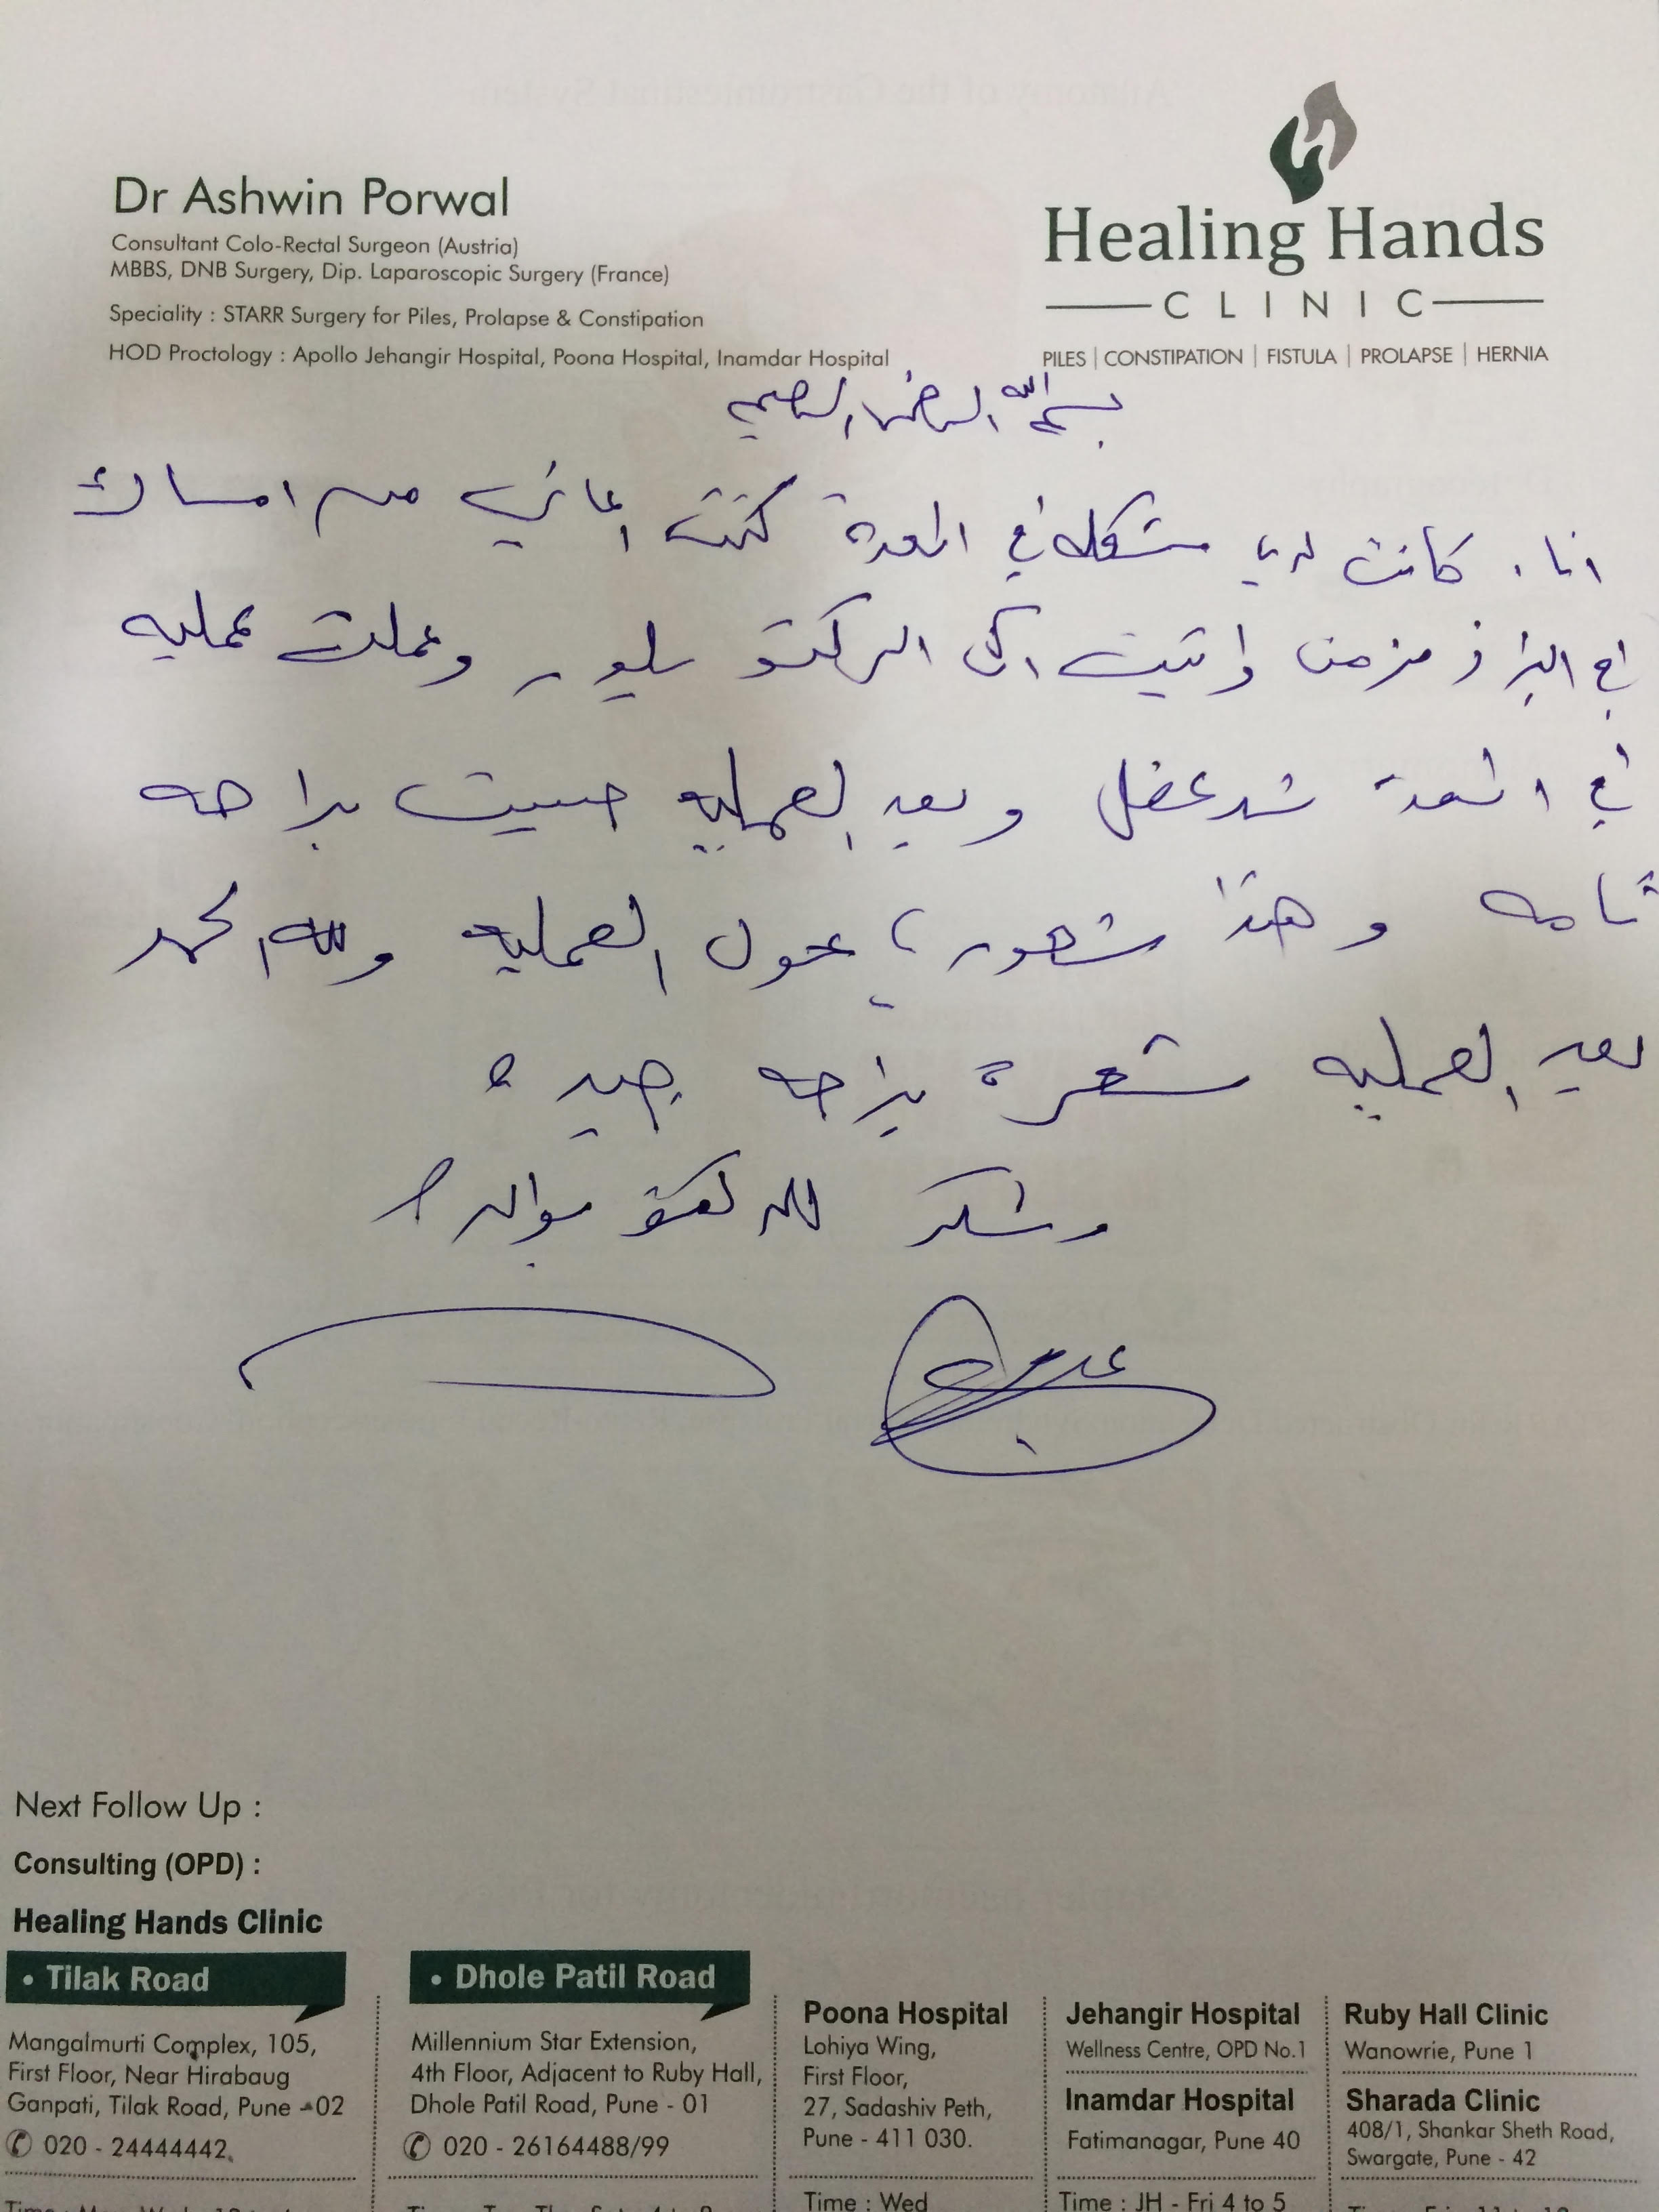 Dr Ashwin Porwal
Consultant Colo-Rectal Surgeon (Austria)
MBBS, DNB Surgery, Dip. Laparoscopic Surgery (France)
Speciality : STARR Surgery for Piles, Prolapse & Constipation
HOD Proctology : Apollo Jehangir Hospital, Poona Hospital, Inamdar Hospital
Healing Hands
CLINIC
PILES | CONSTIPATION | FISTULA | PROLAPSE | HERNIA
بسم الله الرحمن الرحيم
انا كانت لدي مشكله في المعدة كنت اعاني من امساك
في البراز مزمن واتيت الى الدكتو وعملت عمليه
في المعدة شد عضل وبعد العمليه حسيت براحه
تامه وهذا شعوري حول العمليه ولله الحمد
بعد العمليه شعرة براحه جيده
وشكر للدكتو
Next Follow Up :
Consulting (OPD) :
Healing Hands Clinic
• Tilak Road
Mangalmurti Complex, 105,
First Floor, Near Hirabaug
Ganpati, Tilak Road, Pune - 02
020 - 24444442
• Dhole Patil Road
Millennium Star Extension,
4th Floor, Adjacent to Ruby Hall,
Dhole Patil Road, Pune - 01
020 - 26164488/99
Poona Hospital
Lohiya Wing,
First Floor,
27, Sadashiv Peth,
Pune - 411 030.
Time : Wed
Jehangir Hospital
Wellness Centre, OPD No.1
Inamdar Hospital
Fatimanagar, Pune 40
Time : JH - Fri 4 to 5
Ruby Hall Clinic
Wanowrie, Pune 1
Sharada Clinic
408/1, Shankar Sheth Road,
Swargate, Pune - 42